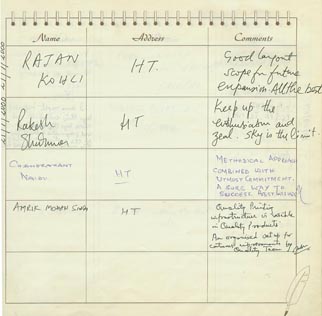 Name Address Comments
RAJAN
KOHLI
HT.
Good layout
scope for future
expansion All the best
Rakesh
Sharma
HT
Keep up the
enthusiasm and
zeal. Sky is the limit.
CHANDRAKANT
HT
METHODICAL APPROACH
COMBINED WITH
UTMOST COMMITMENT.
A SURE WAY TO
SUCCESS. BEST WISHES
AMRIK MOHAN SINGH
HT
Quality Printing
infrastructure is visible
in Quality Products
An organised set up for
improvements by
Quality Team